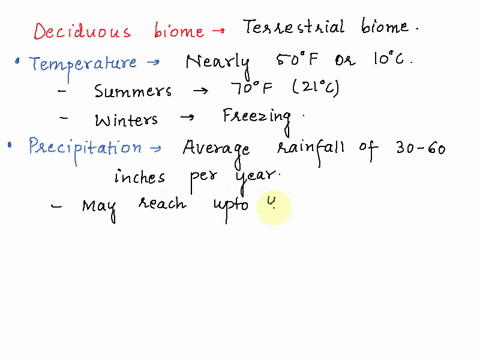 Deciduous biome → Terrestrial biome.
• Temperature → Nearly 50°F or 10°C.
- Summers → 70°F (21°C)
- Winters → Freezing.
• Precipitation → Average rainfall of 30-60
inches per year.
- May reach upto